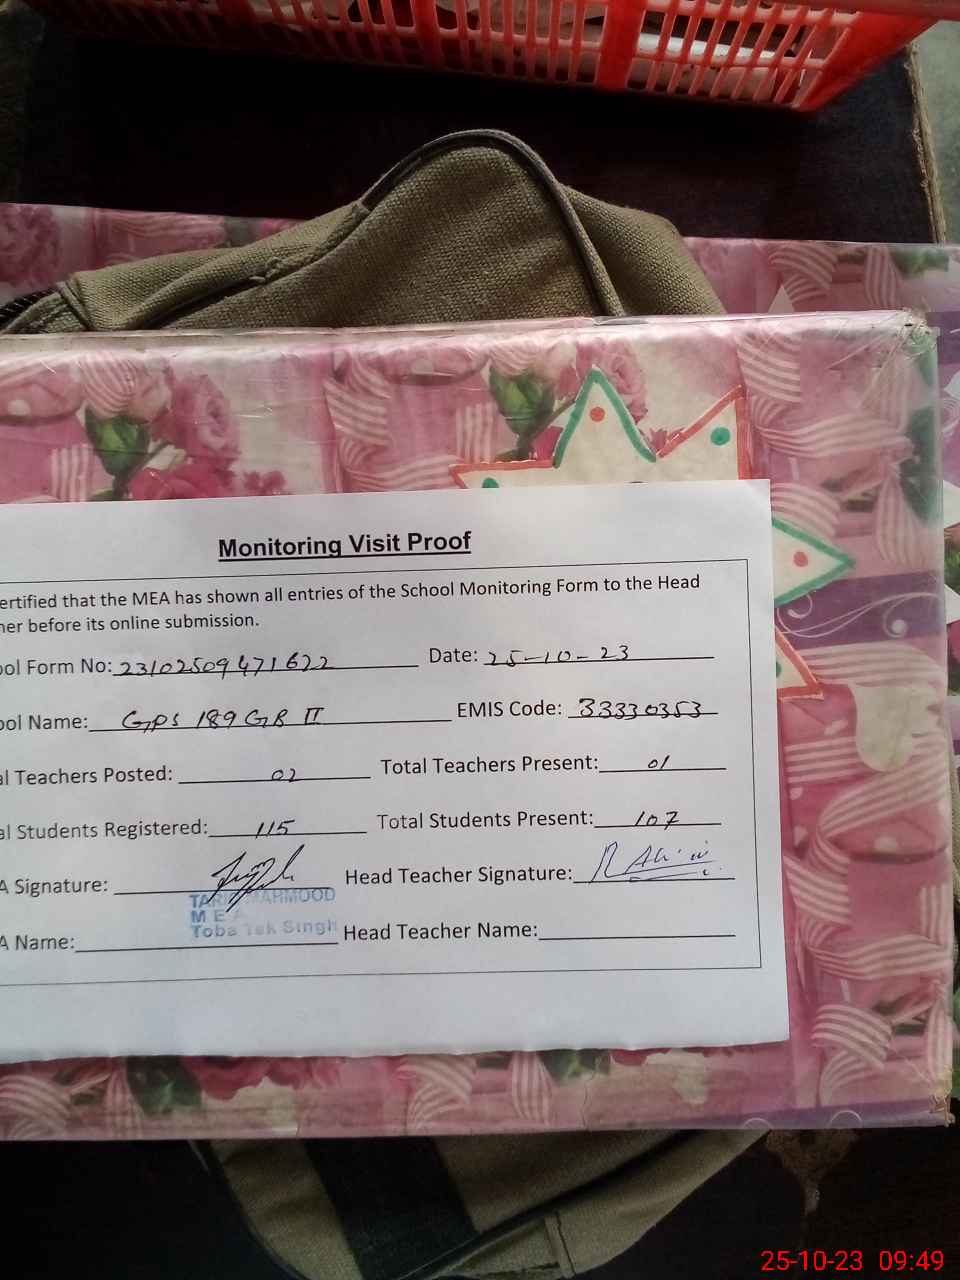 Monitoring Visit Proof
ertified that the MEA has shown all entries of the School Monitoring Form to the Head
her before its online submission.
ool Form No: 23102509471622 Date: 25-10-23
ool Name: GPS 189 GB II EMIS Code: 33330353
al Teachers Posted: 02 Total Teachers Present: 01
al Students Registered: 115 Total Students Present: 107
A Signature: Head Teacher Signature:
TARIQ MAHMOOD
M E A
Toba Tek Singh
A Name: Head Teacher Name:
25-10-23 09:49